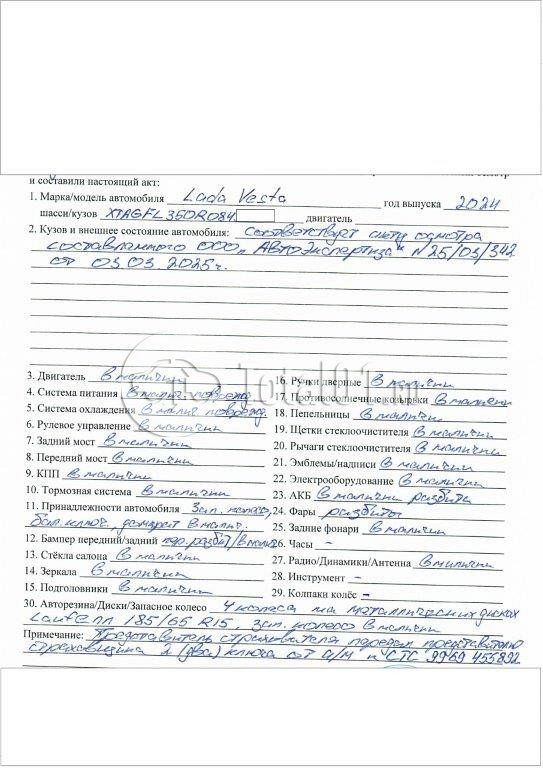 и составили настоящий акт:
1. Марка/модель автомобиля Lada Vesta год выпуска 2024
шасси/кузов XTAGFL350R084 двигатель
2. Кузов и внешнее состояние автомобиля: соответствует акту осмотра
составленного ООО „АвтоЭкспертиза" N25/03/342
от 03.03.2025г.
Total01.ru
3. Двигатель в наличии
4. Система питания в налич. поврежд.
5. Система охлаждения в налич поврежд.
6. Рулевое управление в наличии
7. Задний мост в наличии
8. Передний мост в наличии
9. КПП в наличии
10. Тормозная система в наличии
11. Принадлежности автомобиля Зап. колесо,
бал. ключ, домкрат в налич.
12. Бампер передний/задний пер. разбит/в налич
13. Стёкла салона в наличии
14. Зеркала в наличии
15. Подголовники в наличии
16. Ручки дверные в наличии
17. Противосолнечные козырьки в наличии
18. Пепельницы в наличии
19. Щетки стеклоочистителя в наличии
20. Рычаги стеклоочистителя в наличии
21. Эмблемы/надписи в наличии
22. Электрооборудование в наличии
23. АКБ в наличии разбита
24. Фары разбиты
25. Задние фонари в наличии
26. Часы –
27. Радио/Динамики/Антенна в наличии
28. Инструмент –
29. Колпаки колёс –
30. Авторезина/Диски/Запасное колесо 4 колеса на металлических дисках
Laufenn 185/65 R15, зап. колесо в наличии
Примечание: Представитель страхователя передал представителю
страховщика 2 (два) ключа от а/м и СТС 9969 455892